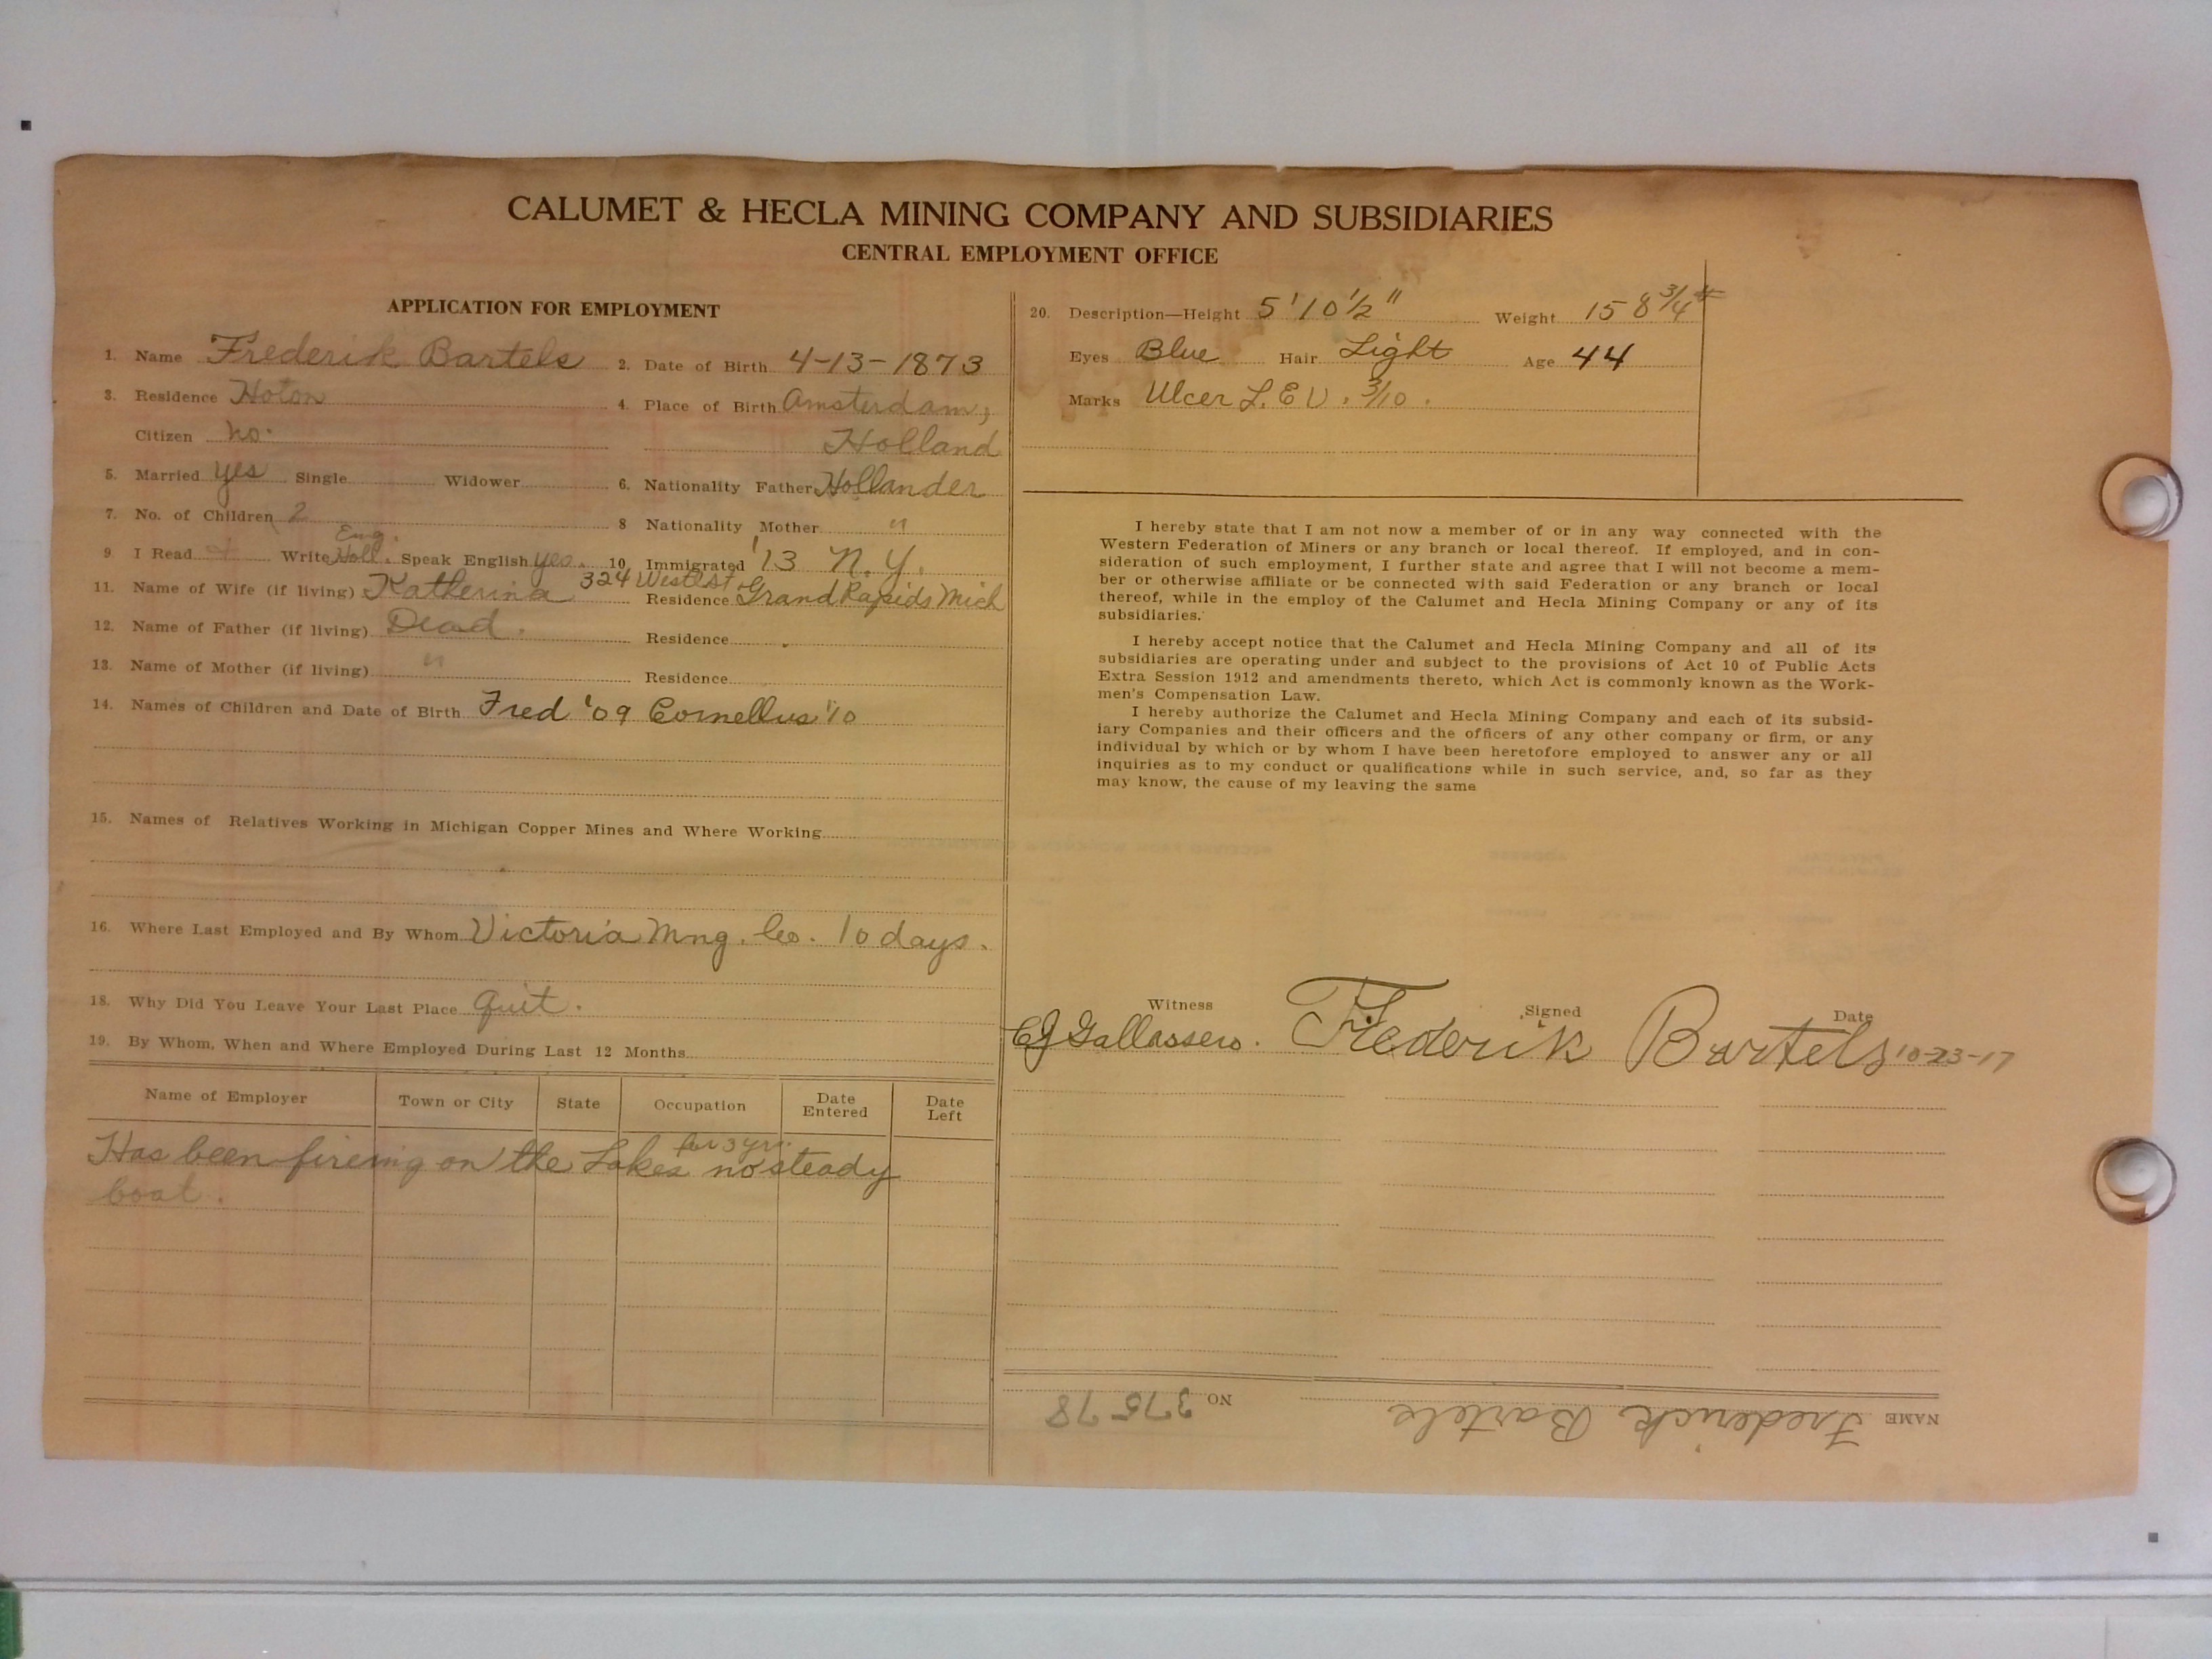 CALUMET & HECLA MINING COMPANY AND SUBSIDIARIES
CENTRAL EMPLOYMENT OFFICE
APPLICATION FOR EMPLOYMENT
1. Name Frederik Bartels 2. Date of Birth 4-13-1873
3. Residence Hoton 4. Place of Birth Amsterdam,
Citizen no. Holland
5. Married yes Single Widower 6. Nationality Father Hollander
7. No. of Children 2 8 Nationality Mother "
Eng.
9. I Read + Write Holl. Speak English yes. 10 Immigrated '13 N.Y.
11. Name of Wife (if living) Katherina 324 West Residence Grand Rapids Mich
12. Name of Father (if living) Dead. Residence
13. Name of Mother (if living) " Residence
14. Names of Children and Date of Birth Fred '09 Cornellus '10
15. Names of Relatives Working in Michigan Copper Mines and Where Working
16. Where Last Employed and By Whom Victoria Mng. Co. 10 days.
18. Why Did You Leave Your Last Place quit.
19. By Whom, When and Where Employed During Last 12 Months
Name of Employer Town or City State Occupation Date Entered Date Left
for 3 yrs.
Has been fireing on the Lakes no steady
boat.
20. Description—Height 5'10½" Weight 158¾#
Eyes Blue Hair Light Age 44
Marks Ulcer L.E V. 3/10.
I hereby state that I am not now a member of or in any way connected with the
Western Federation of Miners or any branch or local thereof. If employed, and in con-
sideration of such employment, I further state and agree that I will not become a mem-
ber or otherwise affiliate or be connected with said Federation or any branch or local
thereof, while in the employ of the Calumet and Hecla Mining Company or any of its
subsidiaries.
I hereby accept notice that the Calumet and Hecla Mining Company and all of its
subsidiaries are operating under and subject to the provisions of Act 10 of Public Acts
Extra Session 1912 and amendments thereto, which Act is commonly known as the Work-
men's Compensation Law.
I hereby authorize the Calumet and Hecla Mining Company and each of its subsid-
iary Companies and their officers and the officers of any other company or firm, or any
individual by which or by whom I have been heretofore employed to answer any or all
inquiries as to my conduct or qualifications while in such service, and, so far as they
may know, the cause of my leaving the same
Witness Signed Date
Frederik Bartels 10-23-17
NAME Frederick Bartels NO 37578